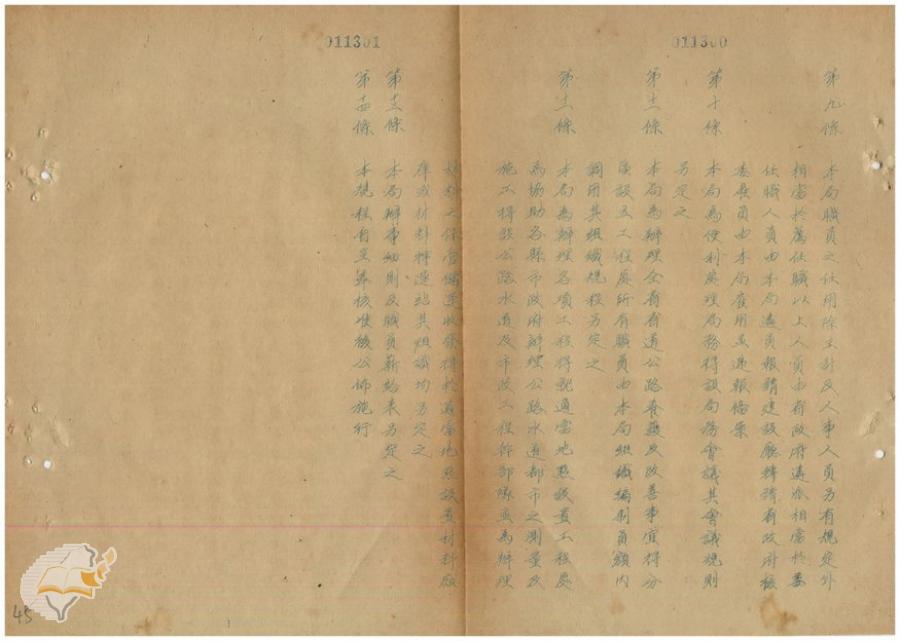 011300
第九條 本局職員之任用除主計及人事人員另有規定外
相當於薦任職以上人員由省政府遴派相當於委
任職人員由本局遴員報請建設廳轉請省政府核
委雇員由本局雇用並遞報備案
第十條 本局為便利處理局務得設局務會議其會議規則
另定之
第十一條 本局為辦理全省省道公路養護及改善事宜得分
區設及工程處所有職員由本局組織編制員額內
調用其組織規程另定之
第十二條 本局為辦理各項工程得就適當地點設置工程處
為協助各縣市政府辦理公路水道都市之測量及
施工得設公路水道及市政工程隊並為辦理
011301
材料之保管儲運收發得於適當地點設置材料廠
庫或材料轉運站其組織均另定之
第十三條 本局辦事細則及職員薪給表另定之
第十四條 本規程自呈奉核准後公佈施行
45